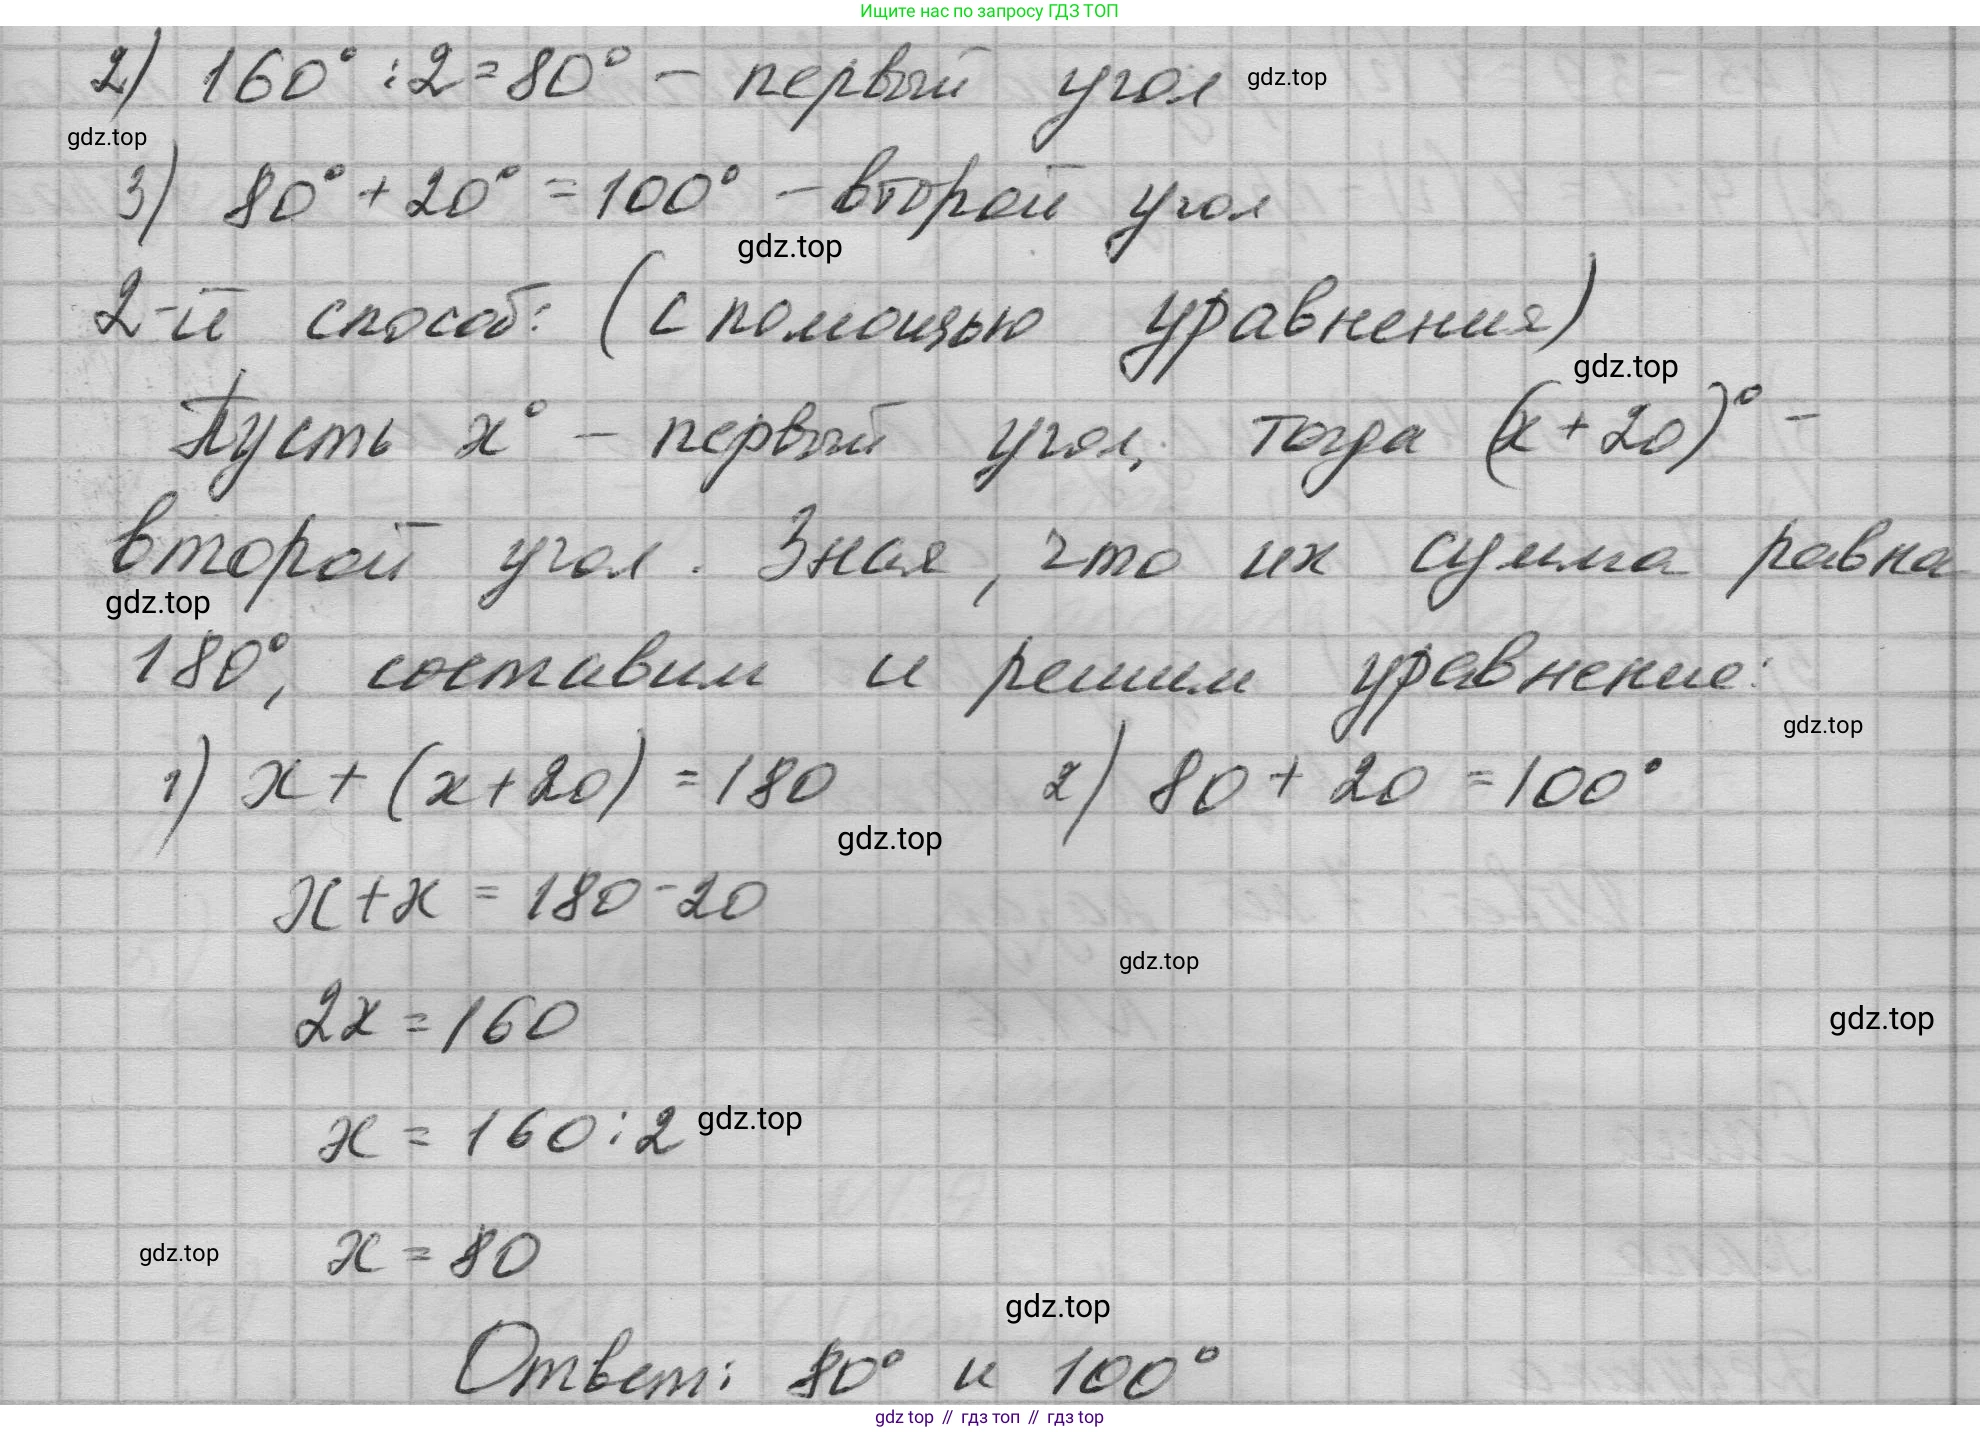 Ищите нас по запросу ГДЗ ТОП
2) 160° : 2 = 80° – первый угол gdz.top
gdz.top
3) 80° + 20° = 100° – второй угол
gdz.top
2-й способ: (с помощью уравнения)
gdz.top
Пусть x° – первый угол, тогда (x + 20)° –
второй угол. Зная, что их сумма равна
gdz.top
180°, составим и решим уравнение:
gdz.top
1) x + (x + 20) = 180 2) 80 + 20 = 100°
gdz.top
x + x = 180 - 20
gdz.top
2x = 160
gdz.top
x = 160 : 2 gdz.top
gdz.top x = 80
gdz.top
Ответ: 80° и 100°
gdz top // гдз топ // гдз top